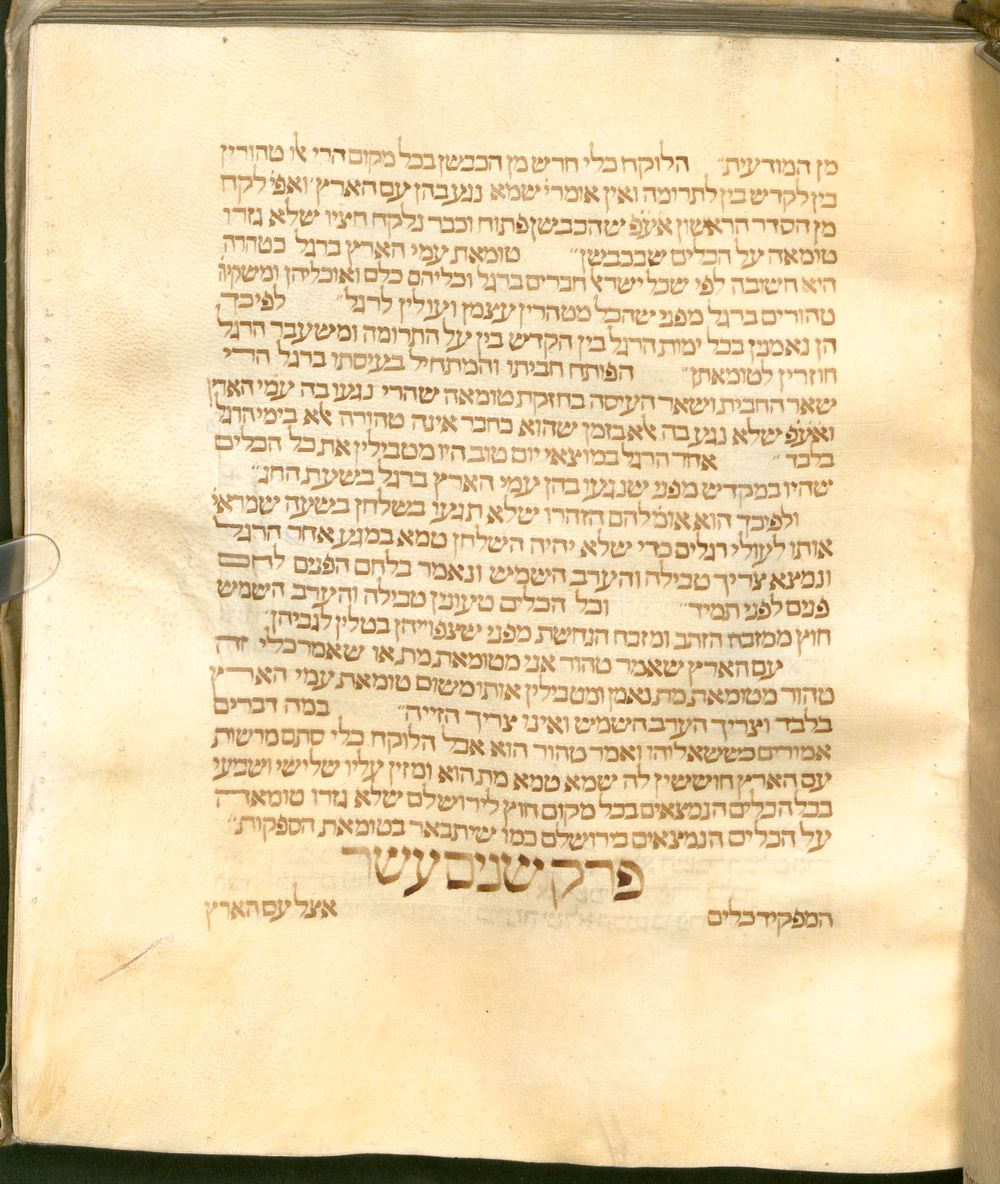 מן המודעית״ הלוקח כלי חרש מן הכבשן בכל מקום הרי אלו טהורין
בין לקדש בין לתרומה ואין אומרי׳ שמא נגעו בהן עם הארץ ואפי׳ לקח
מן הסדר הראשון אעפ׳ שהכבשן פתוח וכבר נלקח חציו שלא גזרו
טומאה על הכלים שבכבשן״ טומאת עמי הארץ ברגל כטהרה
היא חשובה לפי שכל ישראל חברים ברגל וכליהם כלם ואוכליהן ומשקיהן
טהורים ברגל מפני שהכל מטהרין עצמן ועולין לרגל״ לפיכך
הן נאמנין בכל ימות הרגל בין הקדש בין על התרומה ומשעבר הרגל
חוזרין לטומאתן״ הפותח חביתו והמתחיל בעיסתו ברגל הרי
שאר החבית ושאר העיסה בחזקת טומאה שהרי נגעו בה עמי הארץ
ואעפ׳ שלא נגעו בה אלא בזמן שהוא בחבר אינה טהורה אלא בימי הרגל
בלבד״ אחר הרגל במוצאי יום טוב היו מטבילין את כל הכלים
שהיו במקדש מפני שנגעו בהן עמי הארץ ברגל בשעת החג״
ולפיכך הוא אומ׳ להם הזהרו שלא תגעו בשלחן בשעה שמראי׳
אותו לעולי רגלים כדי שלא יהיה השלחן טמא במגע אחר הרגל
ונמצא צריך טבילה והערב השמש ונאמר בלחם הפנים לחם
פנים לפני תמיד״ וכל הכלים טעונין טבילה והערב השמש
חוץ ממזבח הזהב ומזבח הנחשת מפני שצפוייהן בטלין לגביהן׳
עם הארץ שאמר טהור אני מטומאת מת או שאמר כלי זה
טהור מטומאת מת נאמן ומטבילין אותו משום טומאת עמי הארץ
בלבד וצריך הערב השמש ואינו צריך הזייה״ במה דברים
אמורים כששאלוהו ואמר טהור הוא אבל הלוקח כלי סתם מרשות
עם הארץ חוששין לה שמא טמא מת הוא ומזין עליו שלישי ושביעי
בכל הכלים הנמצאים בכל מקום חוץ לירושלם שלא גזרו טומאה
על הכלים הנמצאים בירושלם כמו שיתבאר בטומאת הספקות״
פרק שנים עשר
המפקיד כלים אצל עם הארץ